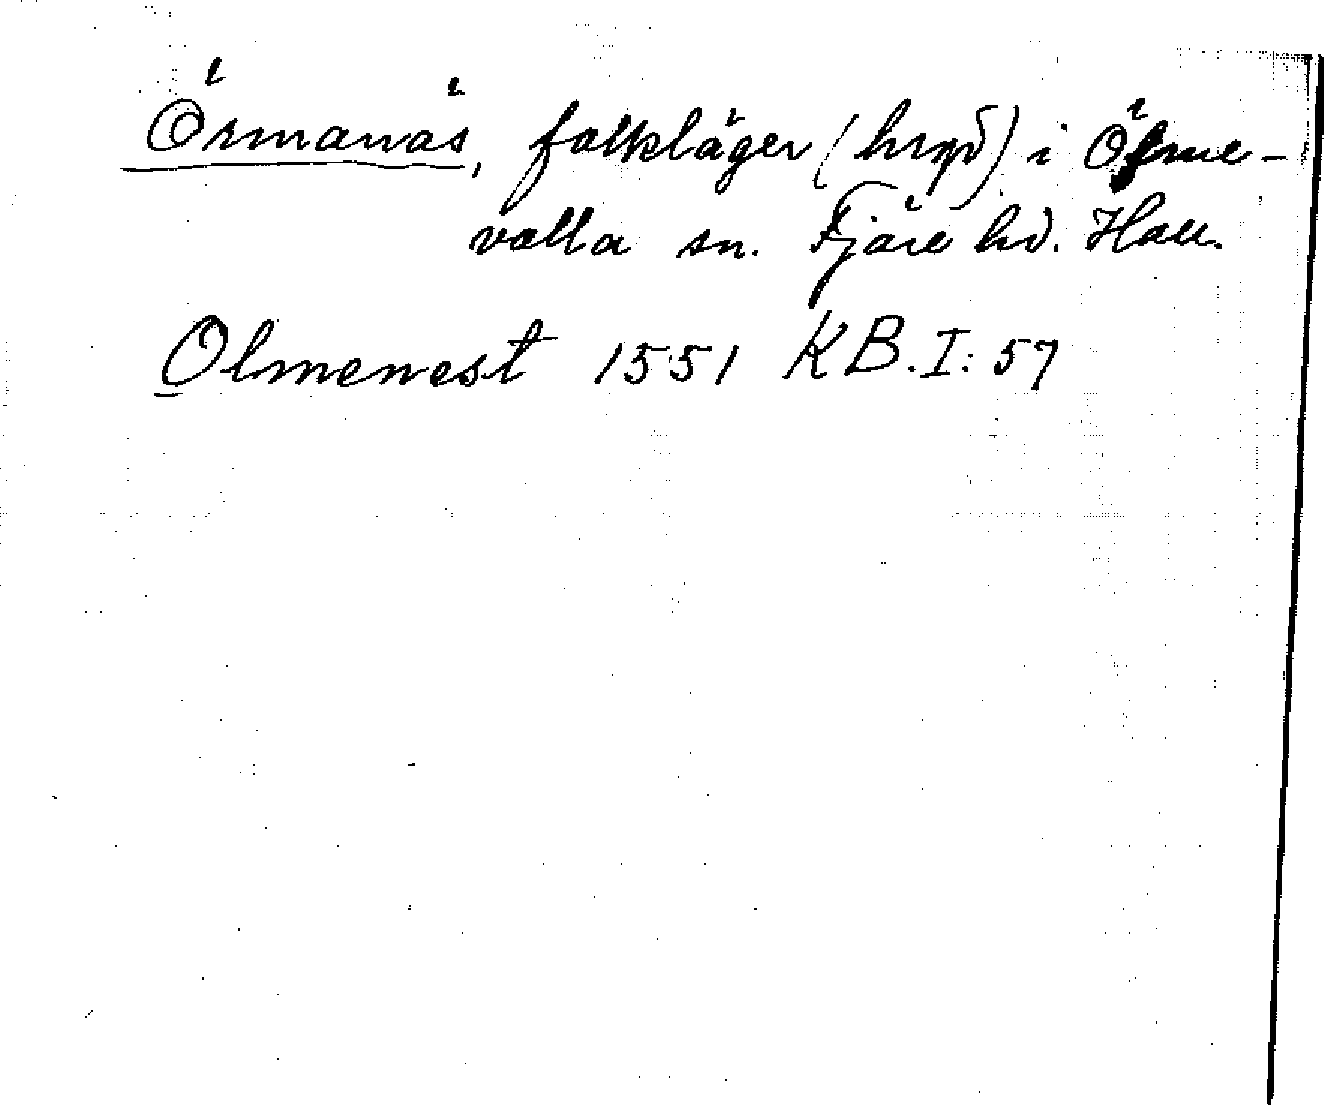 Örmanäs, folkläger (hryd) i Ölme-
valla sn. Fjäre hd. Hall.
Olmenest 1551 KB.I:57